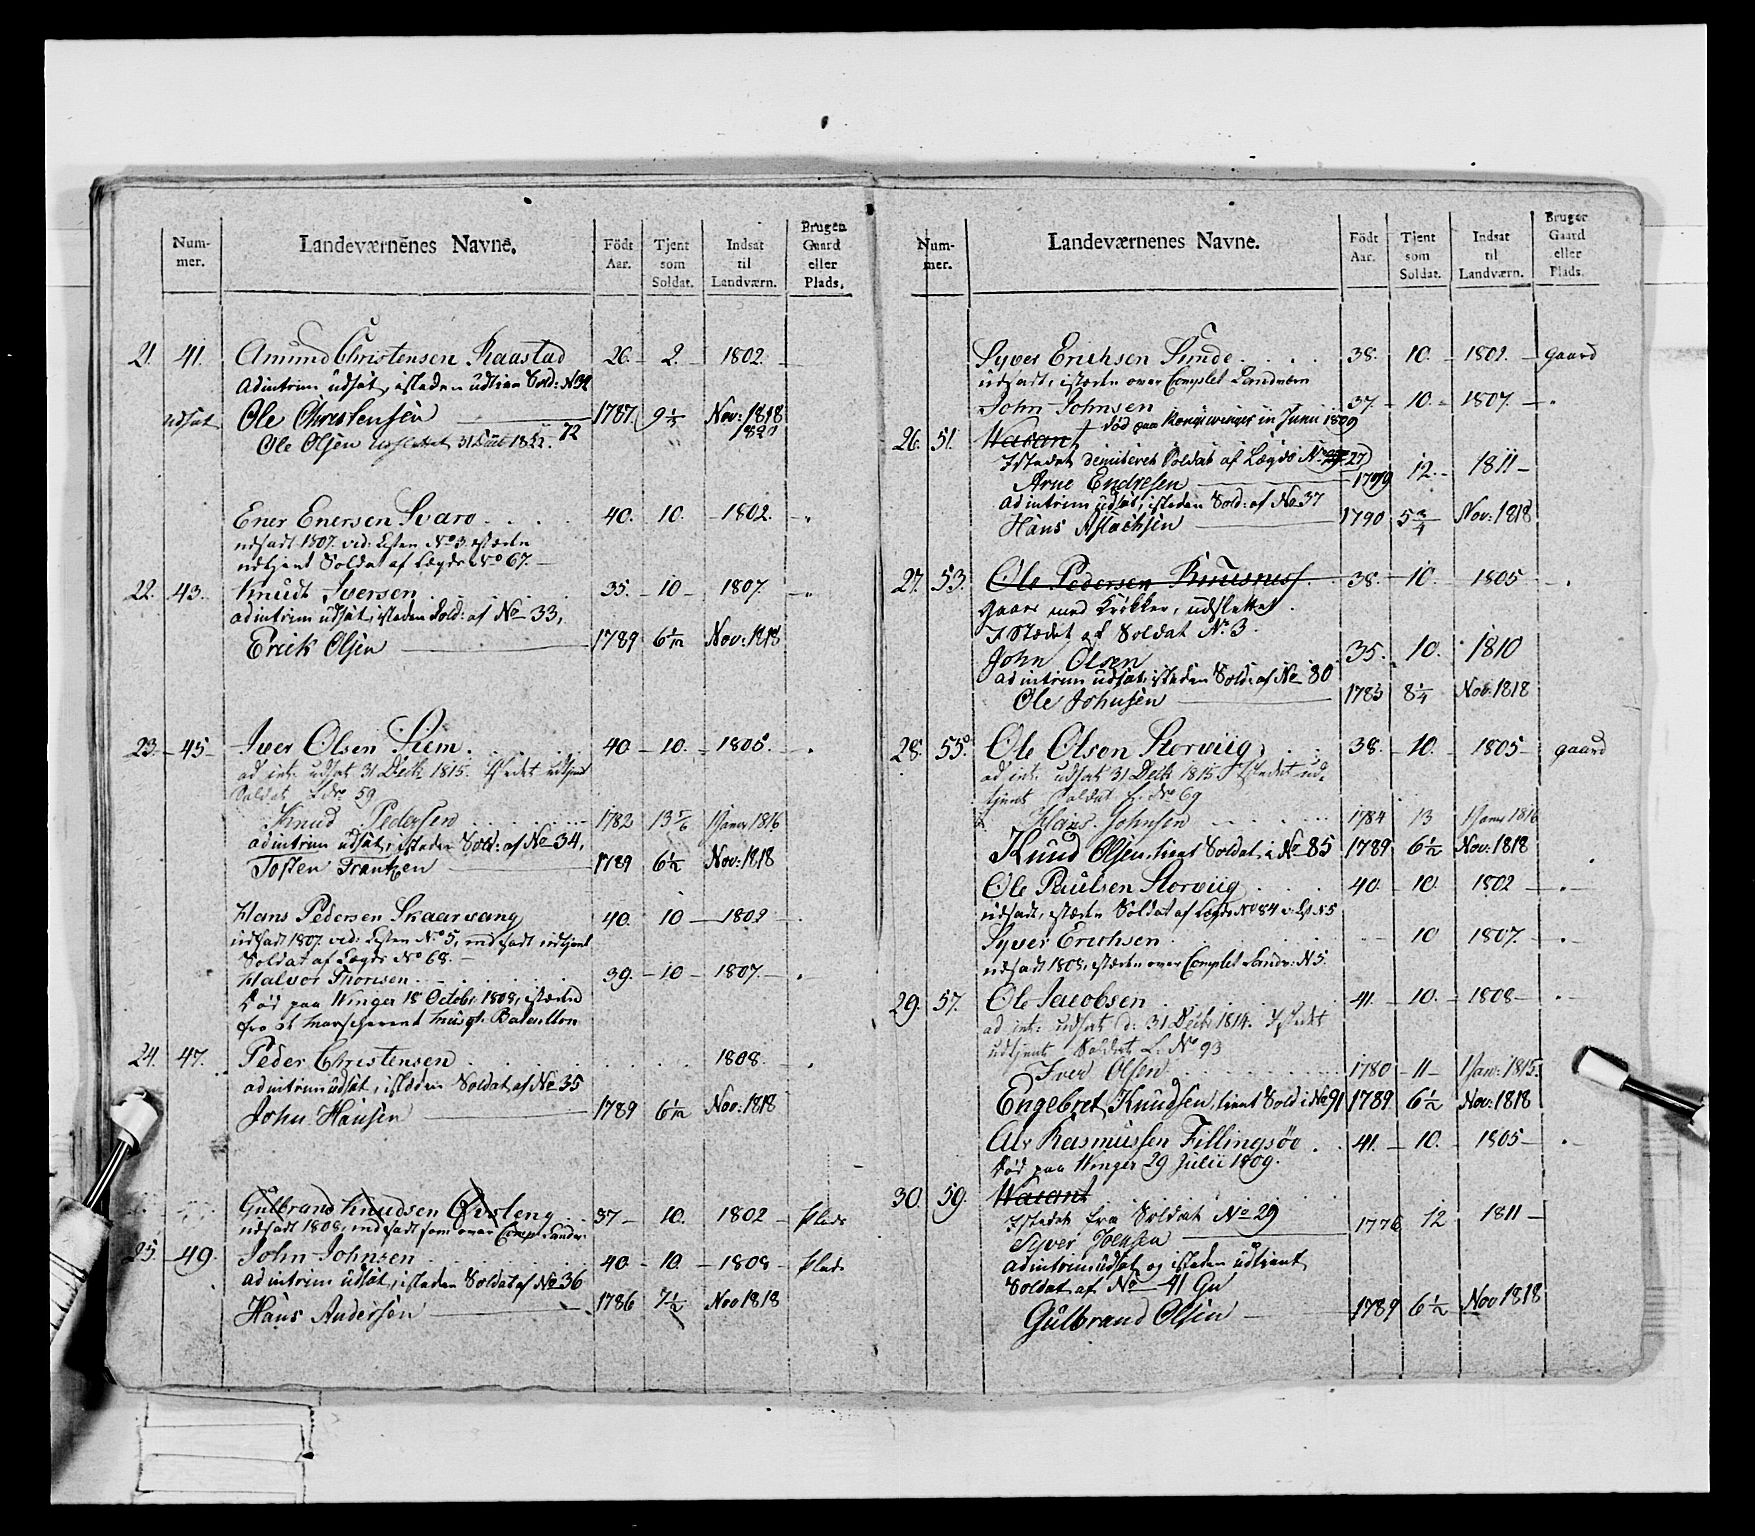 Num-mer. Landeværnenes Navne. Födt Aar. Tjent som Soldat. Indsat til Landværn. Bruger Gaard eller Plads.
21. 41. Amund Christensen Raastad 26. 2. 1802.
ad intrim udsat, isteden udtien Sold: N 32
udsat Ole Christensen 1787. 9 Nov: 1818
1820
Ole Olsen 72
Ener Enersen Svaro 40. 10. 1802.
udsadt 1807. vid: Listen No 3. istæden
udtjent Soldat af Lægds No 67.
22. 43. Knudt Iversen 35. 10 1807.
ad intrim udsat, isteden Sold: af No 33,
Erick Olsen 1789 6 1/2 Nov: 1818
23. 45 Iver Olsen Stem 40 10. 1805.
ad int: udsat 31 Decb 1815. Istedet udtjent
Soldat L. No 59
Knud Pedersen 1782 13 5/6 1 Janr 1816
ad intrim udsat, isteden Sold: af No 34,
Tosten Frantzen 1789 6 1/2 Nov: 1818
Hans Pedersen Skaarvang 40. 10 1802
udsadt 1807. vid: Listen No 5, indsadt udtjent
Soldat af Lægds No 68.
Halvor Thoresen 39. 10 1807.
Død paa Winger 18 Octobr 1808, istæden
fra et Marscherent Musqt. Bataillon
24. 47. Peder Christensen 1808.
ad intrim udsat, isteden Soldat af No 35
John Hansen 1789 6 1/2 Nov: 1818
Gulbrand Knudsen 37 10. 1802 Plads
udsadt 1808, indsadt som over Comp: Landv:
25 49. John Johnsen 40 10. 1808 Plads
ad intrim udsat, isteden Soldat af No 36
Hans Andersen 1786 7 1/2 Nov 1818
Num-mer. Landeværnenes Navne. Födt Aar. Tjent som Soldat. Indsat til Landværn. Bruger Gaard eller Plads.
Syver Erichsen Sunde 38. 10. 1802. gaard
udsadt, istæden over Complet Landværn
John Johnsen 37. 10. 1807.
død paa Kongswinger in Junii 1809
26. 51. Vacant
Istedet demiteret Soldat af Lægds No 27
Arne Endresen 1779 12. 1811
ad intrim udsat, isteden Sold: af No 37
Hans Aslachsen 1790 5 3/4 Nov: 1818
27. 53. Ole Pedersen 38. 10. 1805
gaaer med Krykker, udslettet.
I Stædet af Soldat No 3.
John Olsen 35. 10. 1810
ad intrim udsat isteden Sold: af No 80
Ole Johnsen 1783 8 1/4 Nov: 1818
28. 55. Ole Olsen Storviig 38. 10. 1805 gaard
ad int: udsat 31 Decb 1815 Istedet ud-
tjent Soldat L. No 69
Hans Johnsen 1784 13 1 Janr 1816
Knud Olsen, tient Soldat i No 85 1789 6 1/2 Nov: 1818
Ole Paulsen Storviig 40. 10. 1802
udsadt, istæden Soldat af Lægds No 84 v: Lst N 5
Syver Erichsen 10 1807.
udsadt 1808, istæden over Complet Landv: N 5.
29. 57. Ole Jacobsen 41. 10. 1808
ad int: udsat d: 31 Decb 1814. Istedet
udtjent Soldat L. No 93
Iver Olsen 1780 11 1 Janr: 1815.
Engebret Knudsen, tient Sold i No 91 1789 6 1/2 Nov: 1818
Alv Rasmussen Fillingsøe 41. 10. 1805
Død paa Winger 29 Julii 1809.
30. 59. Vacant
Istedet fra Soldat No 29
Syver Joensen 1776 12 1811
ad intrim udsat og isteden udtient
Soldat af No 41 Gu
Gulbrand Olsen 1789 6 1/2 Nov 1818